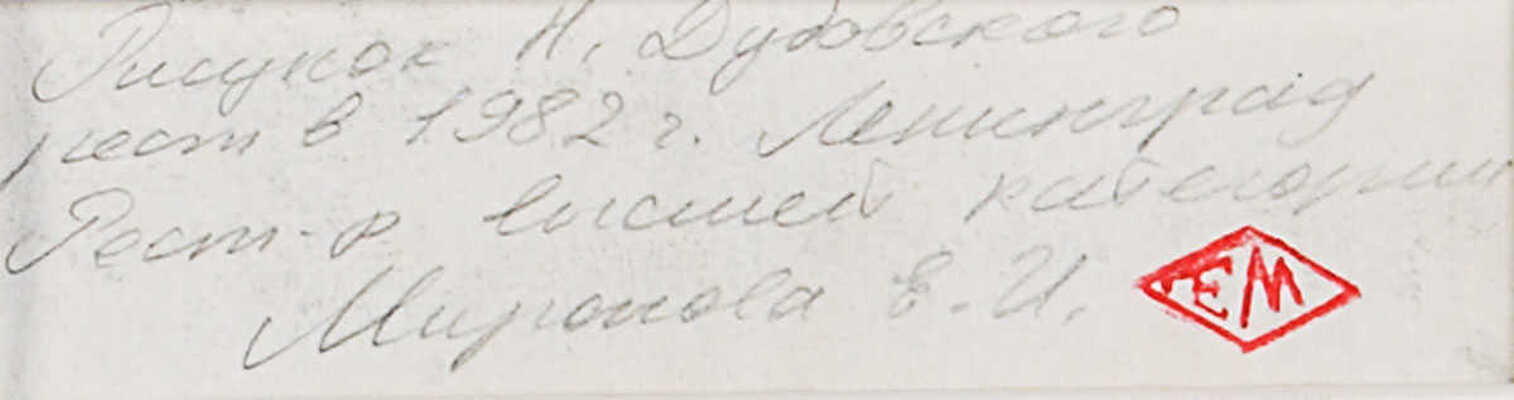 Рисунок Н. Дубовского
рест в 1982 г. Ленинград
Рест-р высшей категории
Миронова Е. И.
ЕМ